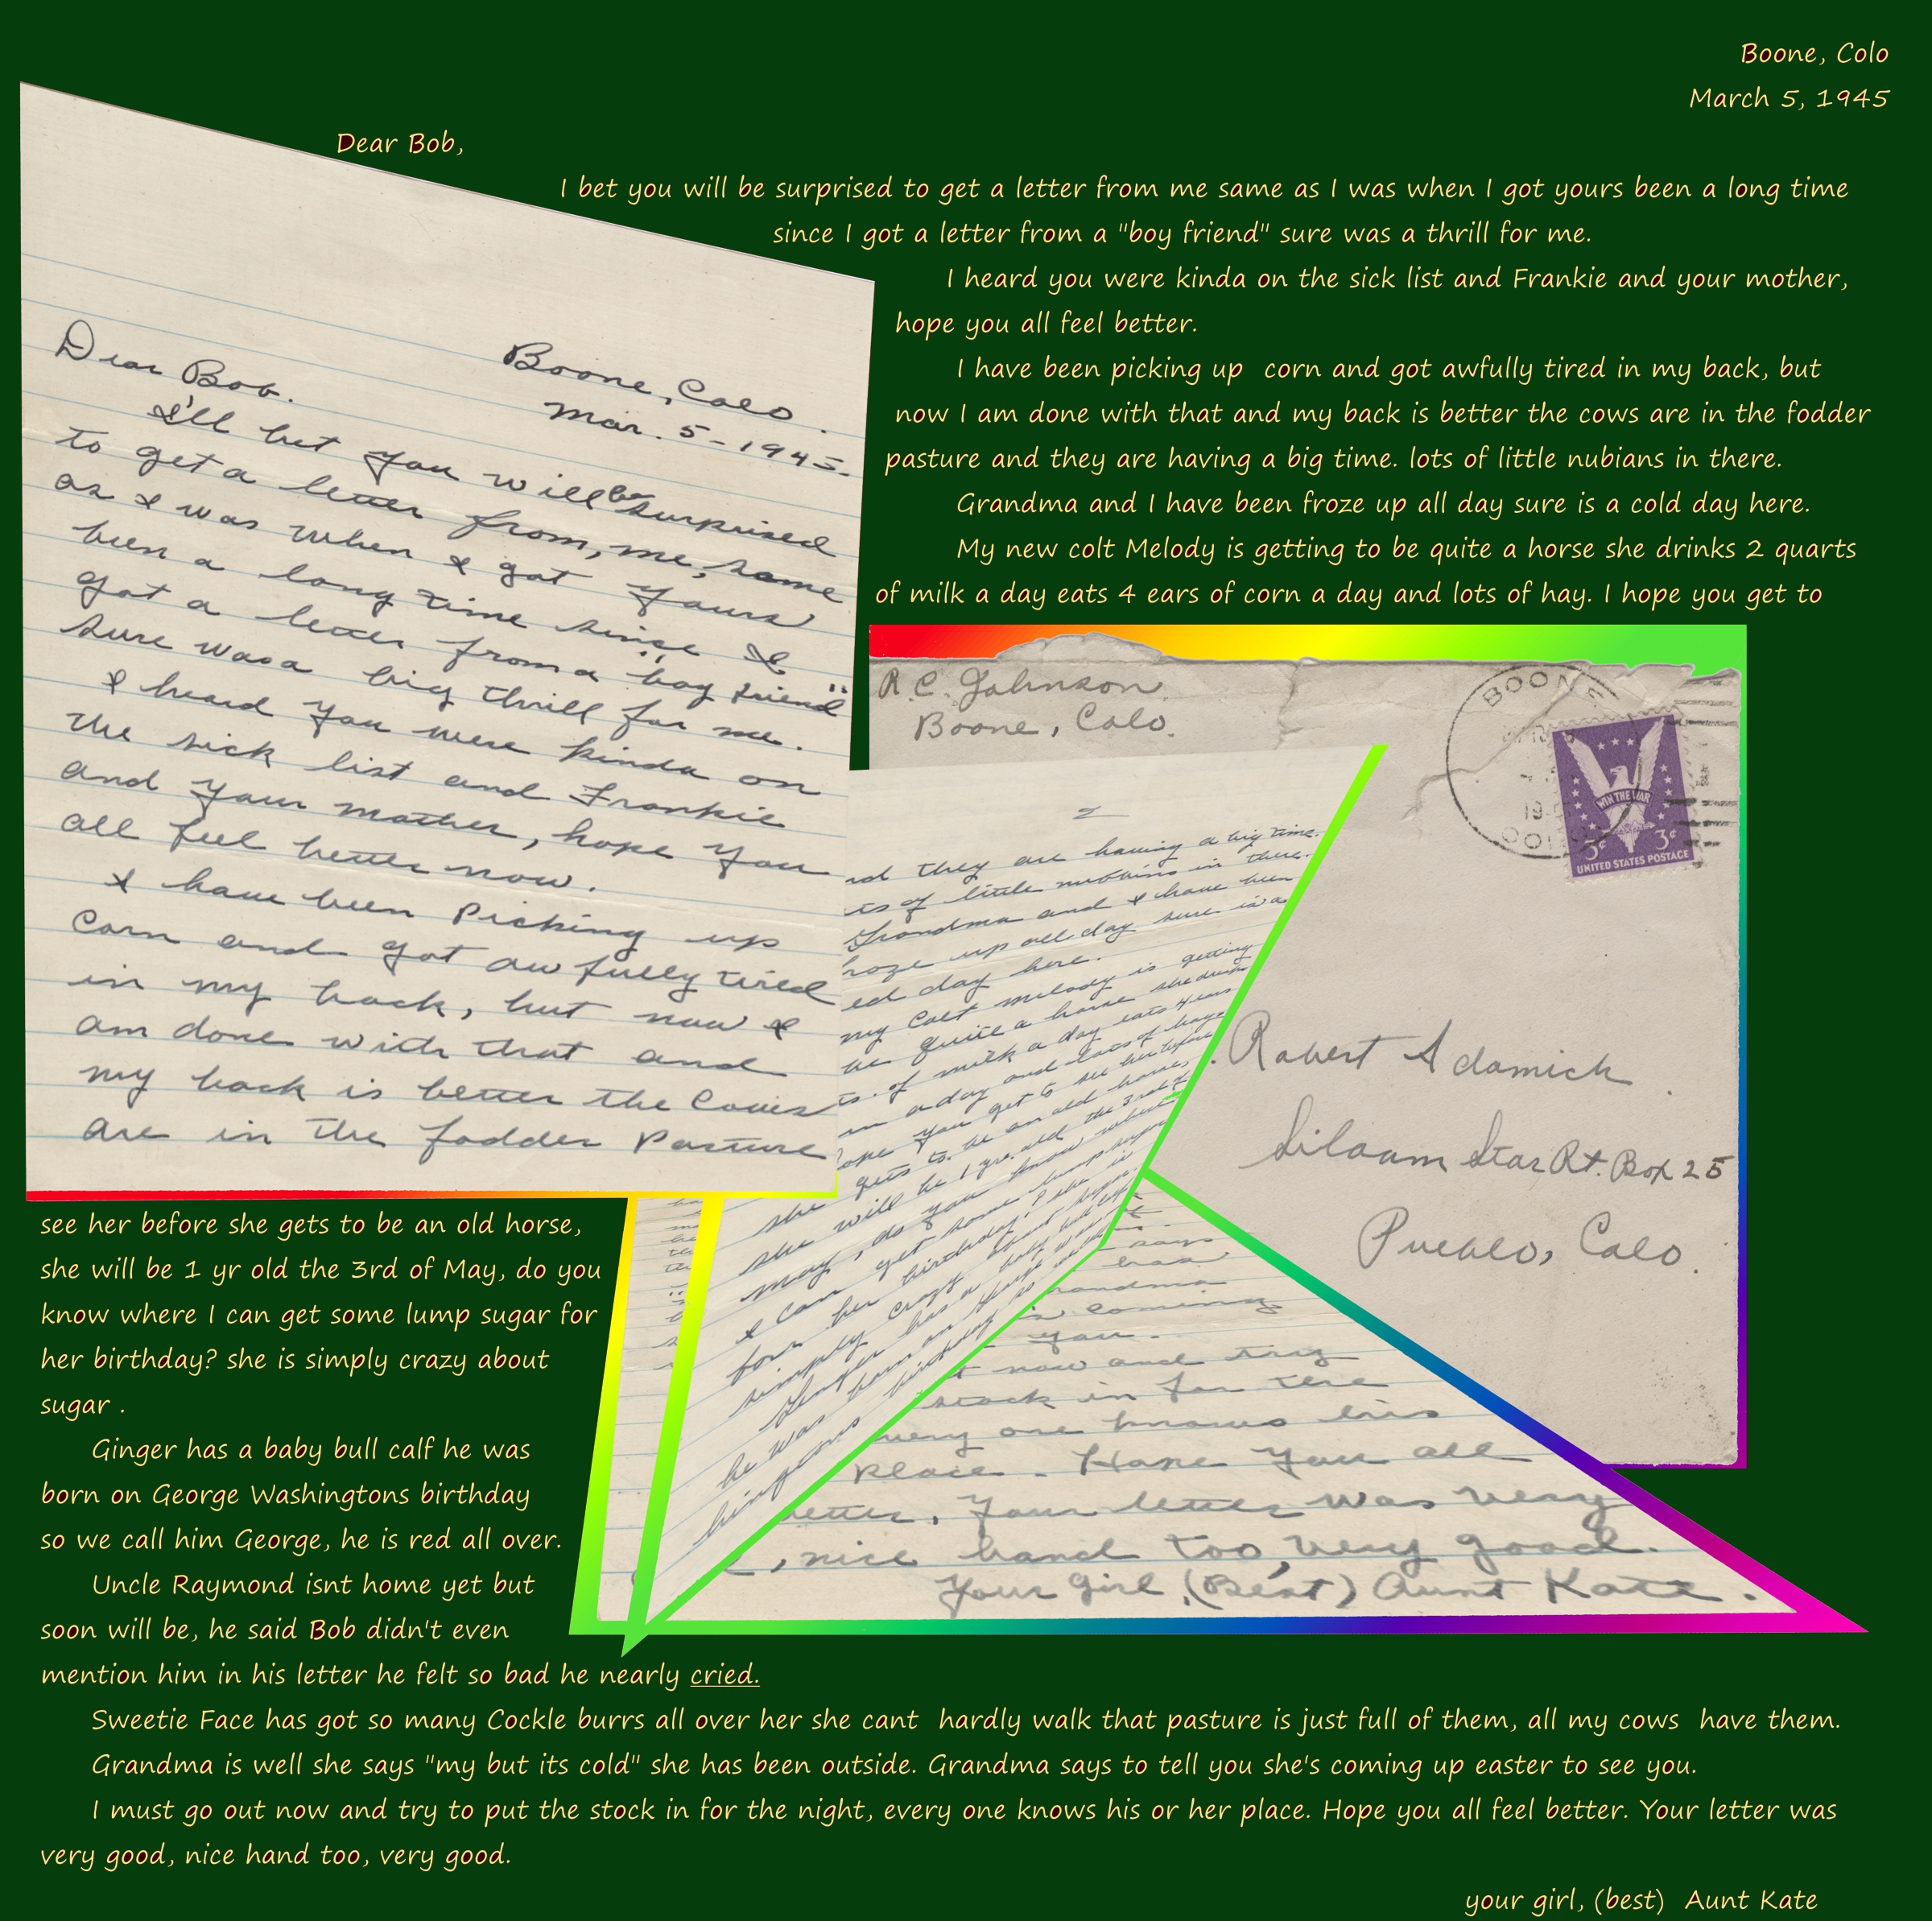 Boone, Colo
March 5, 1945
Dear Bob,
I bet you will be surprised to get a letter from me same as I was when I got yours been a long time
since I got a letter from a "boy friend" sure was a thrill for me.
I heard you were kinda on the sick list and Frankie and your mother,
hope you all feel better.
I have been picking up corn and got awfully tired in my back, but
now I am done with that and my back is better the cows are in the fodder
pasture and they are having a big time. lots of little nubians in there.
Grandma and I have been froze up all day sure is a cold day here.
My new colt Melody is getting to be quite a horse she drinks 2 quarts
of milk a day eats 4 ears of corn a day and lots of hay. I hope you get to
see her before she gets to be an old horse,
she will be 1 yr old the 3rd of May, do you
know where I can get some lump sugar for
her birthday? she is simply crazy about
sugar .
Ginger has a baby bull calf he was
born on George Washingtons birthday
so we call him George, he is red all over.
Uncle Raymond isnt home yet but
soon will be, he said Bob didn't even
mention him in his letter he felt so bad he nearly cried.
Sweetie Face has got so many Cockle burrs all over her she cant hardly walk that pasture is just full of them, all my cows have them.
Grandma is well she says "my but its cold" she has been outside. Grandma says to tell you she's coming up easter to see you.
I must go out now and try to put the stock in for the night, every one knows his or her place. Hope you all feel better. Your letter was
very good, nice hand too, very good.
your girl, (best) Aunt Kate
Boone, Colo.
Mar. 5-1945-
Dear Bob.
I'll bet you will be surprised
to get a letter from, me, same
as I was when I got yours
been a long time since I
got a letter from a "boy friend"
sure was a big thrill for me.
I heard you were kinda on
the sick list and Frankie
and your mother, hope you
all feel better now.
I have been picking up
corn and got awfully tired
in my back, but now I
am done with that and
my back is better the cows
are in the fodder pasture
2
they are having a big time.
of little nubbins in there.
Grandma and I have been
up all day sure is a
day here.
my Colt melody is getting
be quite a horse she drinks
of milk a day eats 4 ears
a day and lots of hay
you get to see her before
she gets to be an old horse,
she will be 1 yr. old the 3rd of
may, do you know where
I can get some lump sugar
for her birthday? she is
simply crazy about sugar.
Ginger has a baby bull calf
he was born on George
birthday so
says
Grandma
is coming
you.
now and try
stock in for
every one knows his
place. Hope you all
better. Your letter was very
, nice hand too, very good.
Your girl, (Best) Aunt Kate.
R. C. Johnson
Boone, Colo.
BOONE
COLO
WIN THE WAR
3¢ 3¢
UNITED STATES POSTAGE
Robert Adamick
Siloam Star Rt. Box 25
Pueblo, Colo.